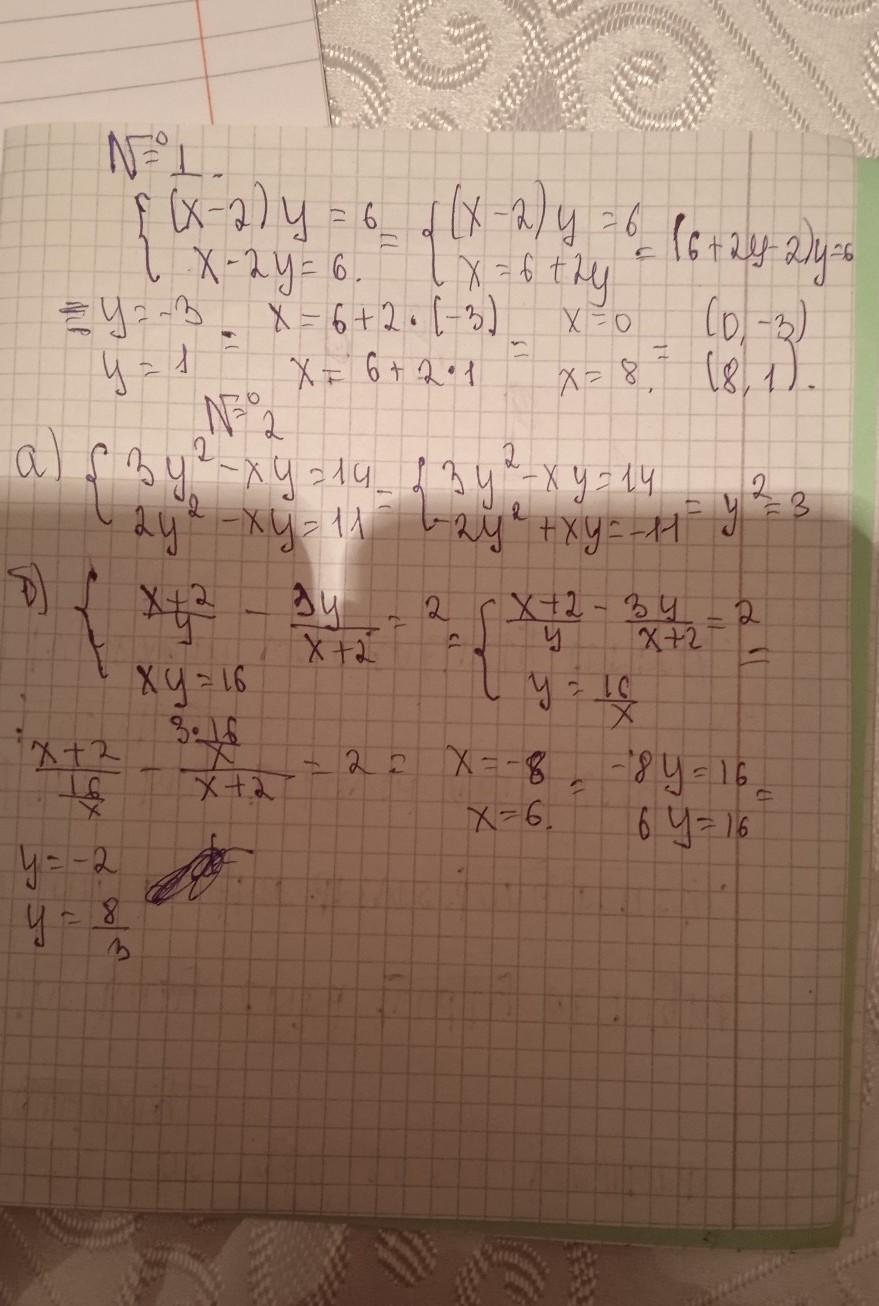 № 1.
{ (x-2)y = 6 = { (x-2)y = 6 = (6+2y-2)y=6
x-2y=6. x=6+2y
= y=-3 = x=6+2·(-3) = x=0 = (0,-3)
y=1 x=6+2·1 x=8. (8,1).
№ 2
a) { 3y²-xy=14 = { 3y²-xy=14 = y²=3
2y²-xy=11 -2y²+xy=-11
б) { x+2/y - 3y/x+2 = 2 = { x+2/y - 3y/x+2 = 2 =
xy=16 y=16/x
x+2/16/x - 3·16/x/x+2 = 2 = x=-8 = -8y=16 =
x=6. 6y=16
y=-2
y=8/3